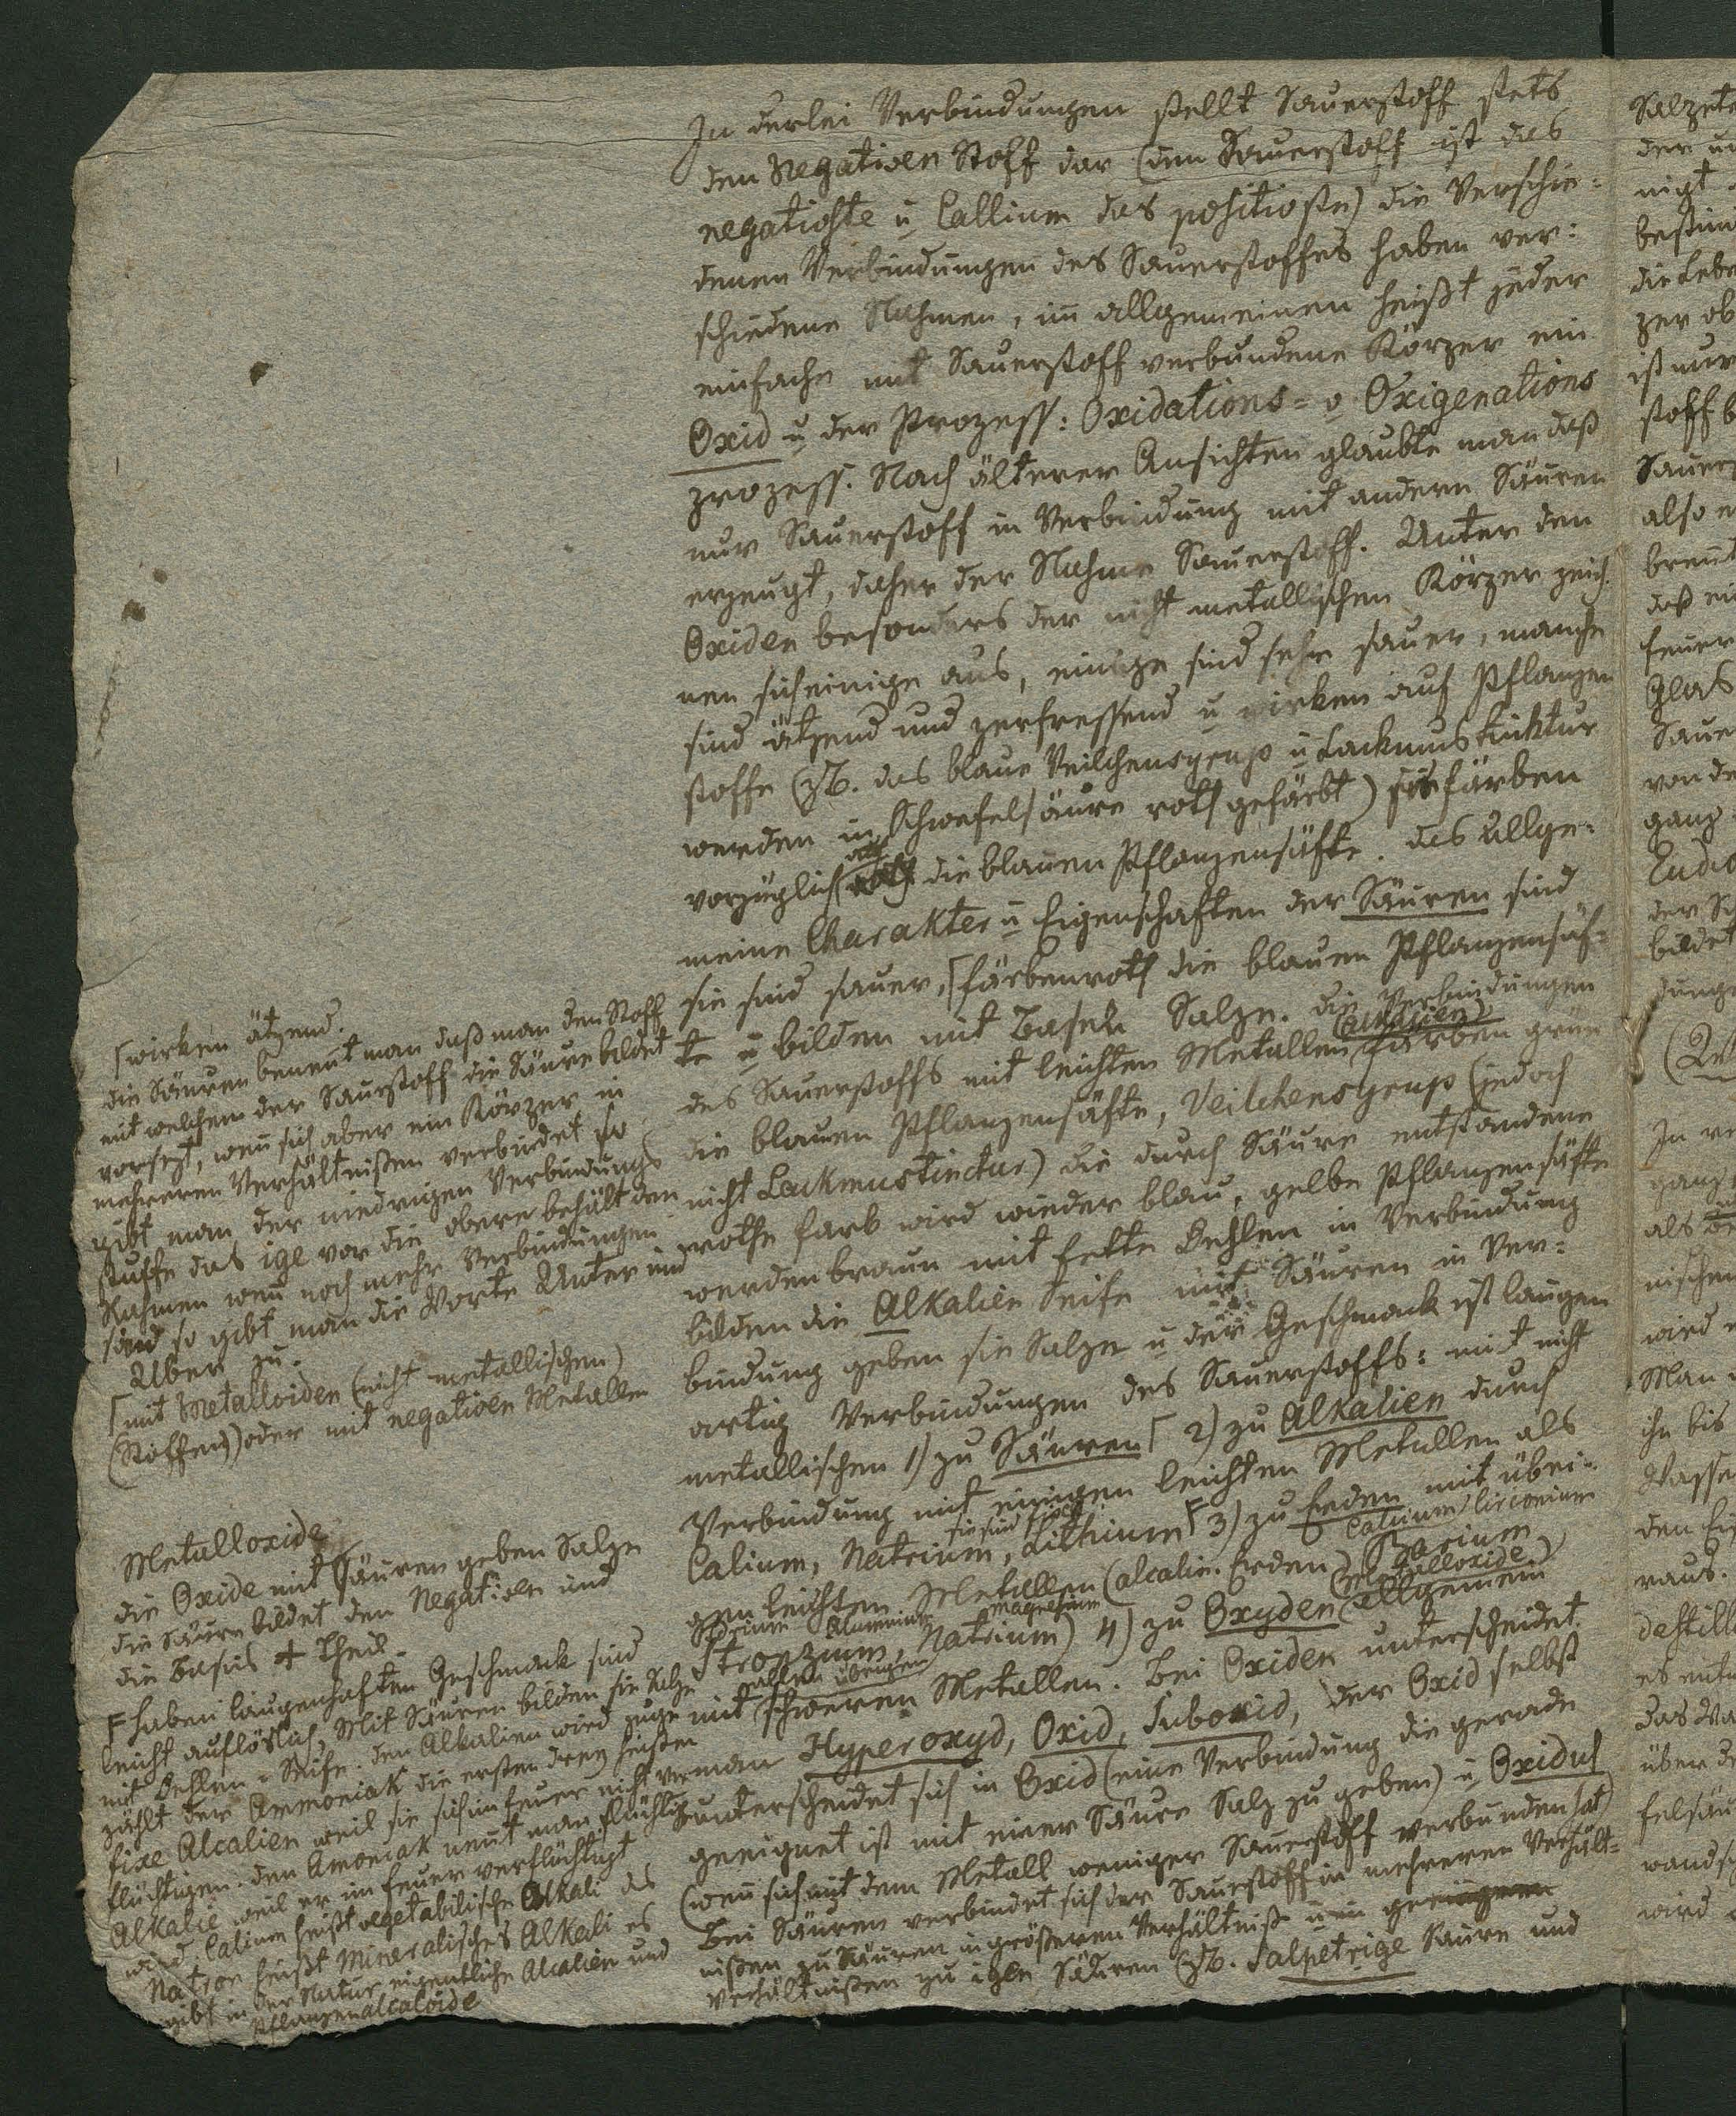 In derlei Verbindungen stellt Sauerstoff stets
den Negativen Stoff dar (den Sauerstoff ist das
negativste u Callium das positivste) die Verschie=
denen Verbindungen des Sauerstoffes haben ver:
schiedene Nahmen, im allgemeinen heißt jeder
einfache mit Sauerstoff verbundene Körper ein
Oxid u der Prozess: Oxidations= o Oxigenations
prozess. Nach älterer Ansichten glaubte man daß
nur Sauerstoff in Verbindung mit andern Säuren
erzeugt, daher der Nahme Sauerstoff. Unter den
Oxiden besonders der nicht metallischen Körper zeich.
nen sich einige aus, einige sind sehr sauer, manche
sind ätzend und zerfressend u wirken auf Pflanzen
stoffe (zB. das blaue Veilchensyrup u Lackmustinktur
werden in Schwefelsäure roth gefärbt) sie färben
vorzüglich roth die blauen Pflanzensäfte. das Allge=
meine Charakter u Eigenschaften der Säuren sind
sie sind sauer, ⌈färben roth die blauen Pflanzensäf=
te u bilden mit Basen Salze. die Verbindungen
des Sauerstoffs mit leichten Metallen (Alkalien) färben grün
die blauen Pflanzensäfte, Veilchensyrup (jedoch
nicht Lackmustinctur) die durch Säure entstandene
rothe farb wird wieder blau, gelbe Pflanzensäfte
werden braun mit fette Oehlen in Verbindung
bilden die Alkalien Seife mit Säuren in Ver=
bindung geben sie Salze u der Geschmack ist laugen
artig Verbindungen des Sauerstoffs: mit nicht
metallischen 1) zu Säuren⌈ 2) zu Alkalien durch
Verbindung mit einigen leichten Metallen als
Calium, Natrium, Lithium⌈ 3) zu Erden mit übri=
sie sind
Calcium Circonium
gen leichten Metallen (alcalin. Erden) Barium
Aluminium Magnesium (Metalloxide)
Stronzium, Natrium) 4) zu Oxyden (allgemein
allen übrigen
mit schweren Metallen. Bei Oxiden unterscheidet
man Hyperoxyd, Oxid, Suboxid, der Oxid selbst
unterscheidet sich in Oxid (eine Verbindung die gerade
geeignet ist mit einer Säure Salz zu geben) u Oxidul
(wenn sich mit dem Metall weniger Sauerstoff verbunden hat)
Bei Säuren verbindet sich der Sauerstoff in mehreren Verhält=
nißen zu Säuren in größeren Verhältniß u in geringeren
Verhältnißen zu igen Säuren (zB. Salpetrige Säure und
⌈wirken ätzend.
die Säuren benennt man daß man den Stoff
mit welchem der Saurstoff die Säure bildet
vorsezt, wenn sich aber ein Körper in
mehreren Verhältnißen verbindet so
gibt man der niedrigen Verbindungs
stuffe das ige vor die obere behält den
Nahmen wenn noch mehr Verbindungen
sind so gibt man die Worte Unter und
Uber zu.
⌈mit Metalloiden (nicht metallischen)
(Stoffen) oder mit negativen Metallen
Metalloxide
die Oxide mit Säuren geben Salze
die Säure bildet den Negativen und
die Basis + Theil.
F haben laugenhaften Geschmack sind
leicht auflöslich, Mit Säuren bilden sie Salze
mit Oehlen = Seife. den Alkalien wird zuge
zählt der Ammoniak die ersten drey heißen
fixe Alcalien weil sie sich im feuer nicht ver
flüchtigen. den Amoniak nennt man flüchtig
Alkalie weil er im feuer verflüchtigt
wird. Calium heißt vegetabilische Alkali das
Natron heißt Mineralisches Alkali es
gibt in der Natur eigentliche Alcalien und
Pflanzenalcaloide
Salzet
der un
nigt
bestim
die Lebe
per ob
ist nur
stoff b
Sauer
also e
brennt
daß ein
feuer
Glas
Saue
von de
ganz
Eudio
der S
bildet
dunge
In re
ganz
als
nischen
wird
Man
ihn bis
Wasse
den
raus.
destill
es ent
das Wa
über d
felsäu
wand
wird